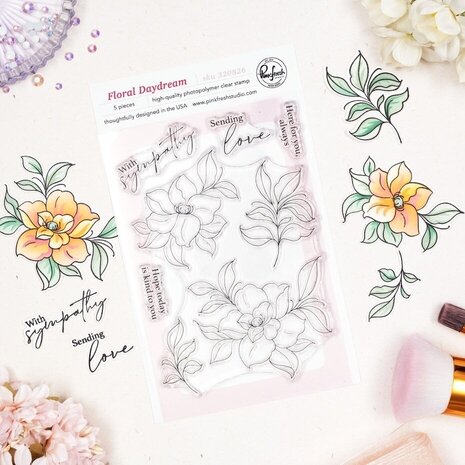 Floral Daydream
sku 320826
5 pieces
high-quality photopolymer clear stamp
thoughtfully designed in the USA
www.pinkfreshstudio.com
Pinkfresh
With
sympathy
Sending
love
Here for you,
always
Hope today
is kind to you
With
sympathy
Sending
love